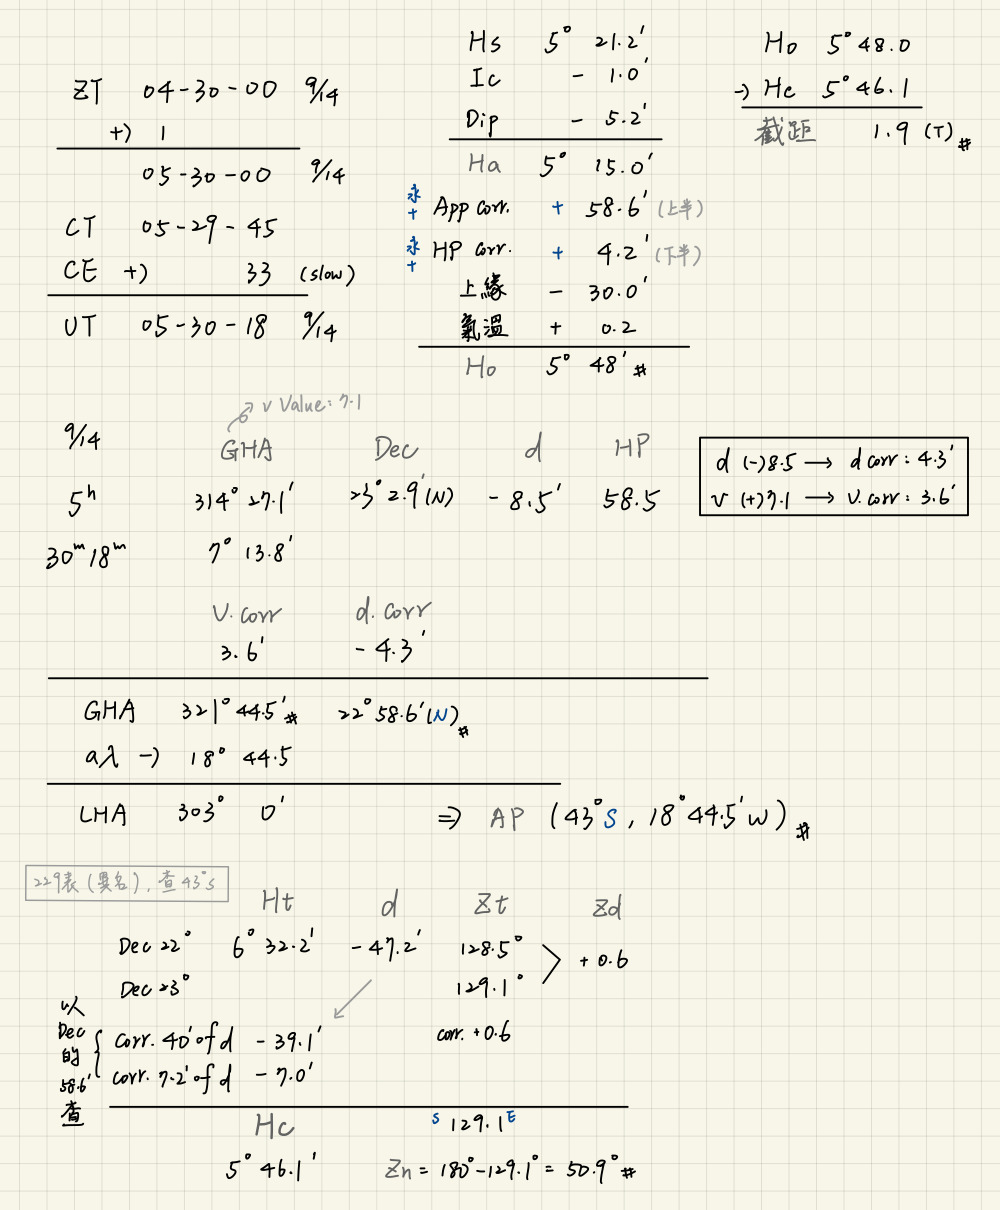 ZT 04-30-00 9/14
+) 1
05-30-00 9/14
CT 05-29-45
CE +) 33 (slow)
UT 05-30-18 9/14
Hs 5° 21.2'
Ic - 1.0'
Dip - 5.2'
Ha 5° 15.0'
永+ App corr. + 58.6' (上半)
永+ HP corr. + 4.2' (下半)
上緣 - 30.0'
氣溫 + 0.2
Ho 5° 48' #
Ho 5° 48.0
-) Hc 5° 46.1
截距 1.9 (T) #
v Value: 7.1
9/14 GHA Dec d HP
5h 314° 27.1' 23° 2.9'(N) - 8.5' 58.5
30m 18m 7° 13.8'
d (-)8.5 → d corr: 4.3'
v (+)7.1 → v. corr: 3.6'
V. corr d. corr
3.6' - 4.3'
GHA 321° 44.5' # 22° 58.6' (N) #
aλ -) 18° 44.5
LHA 303° 0' ⇒ AP (43°S, 18° 44.5' W) #
229表 (異名), 查 43°S
Ht d Zt Zd
Dec 22° 6° 32.2' - 47.2' 128.5°
+ 0.6
Dec 23° 129.1°
以Dec的58.6'查
corr. 40' of d - 39.1' corr. +0.6
corr. 7.2' of d - 7.0'
Hc S 129.1 E
5° 46.1' Zn = 180° - 129.1° = 50.9° #